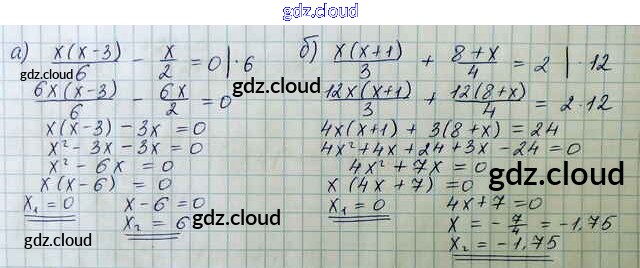 gdz.cloud
а) x(x-3)/6 - x/2 = 0 |·6
gdz.cloud
6x(x-3)/6 - 6x/2 = 0
x(x-3) - 3x = 0
x² - 3x - 3x = 0
x² - 6x = 0
x(x-6) = 0
x₁ = 0 x-6 = 0
x₂ = 6
gdz.cloud
gdz.cloud
б) x(x+1)/3 + 8+x/4 = 2 |·12
gdz.cloud
gdz.cloud
12x(x+1)/3 + 12(8+x)/4 = 2·12
4x(x+1) + 3(8+x) = 24
4x² + 4x + 24 + 3x - 24 = 0
4x² + 7x = 0
x(4x+7) = 0
gdz.cloud
x₁ = 0 4x+7 = 0
x = -7/4 = -1,75
x₂ = -1,75
gdz.cloud